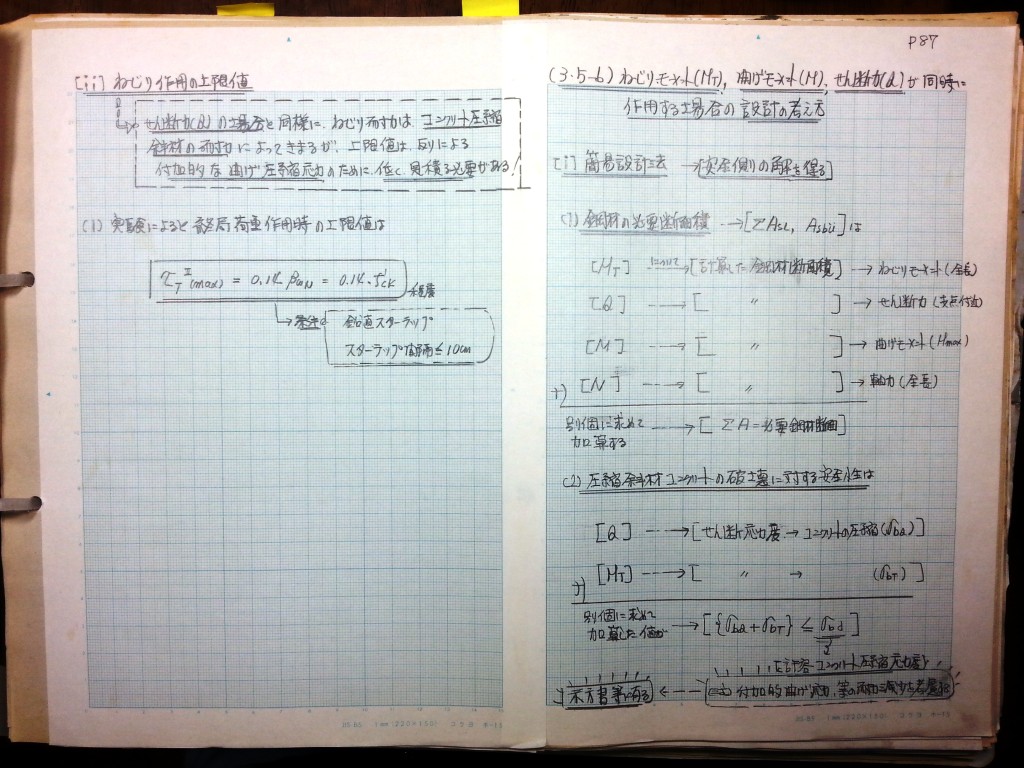 [ii] ねじり作用の上限値
せん断力(Q)の場合と同様に、ねじり耐力は、コンクリート圧縮
斜材の耐力によってきまるが、上限値は、反りによる
付加的な曲げ圧縮応力のために、低く見積る必要がある!
(1) 実験によると 終局荷重作用時の上限値は
τ_T^II(max) = 0.14 β_WN = 0.14・f'ck 程度
条件 鉛直スターラップ
スターラップ間隔 ≤ 10cm
P87
(3・5-6) ねじりモーメント(MT), 曲げモーメント(M), せん断力(Q)が同時に
作用する場合の設計の考え方
[i] 簡易設計法 → [安全側りの解を得る]
(1) 鋼材の必要断面積 → [ΣAsL, Asbü] は
[MT] について→ [計算した鋼材断面積] → ねじりモーメント(全長)
[Q] → [ 〃 ] → せん断力(支点付近)
[M] → [ 〃 ] → 曲げモーメント(Mmax)
+) [N] → [ 〃 ] → 軸力(全長)
別個に求めて → [ΣA = 必要鋼材断面]
加算する
(2) 圧縮斜材コンクリートの破壊に対する安全性は
[Q] → [せん断応力度 → コンクリートの圧縮(σbQ)]
+) [MT] → [ 〃 → (σbT)]
別個に求めて → [{σbQ + σbT} ≤ σbd]
加算した値が
[許容コンクリート圧縮応力度]
示方書等に有る ← 付加的曲げ応力、等の耐力減少も考慮